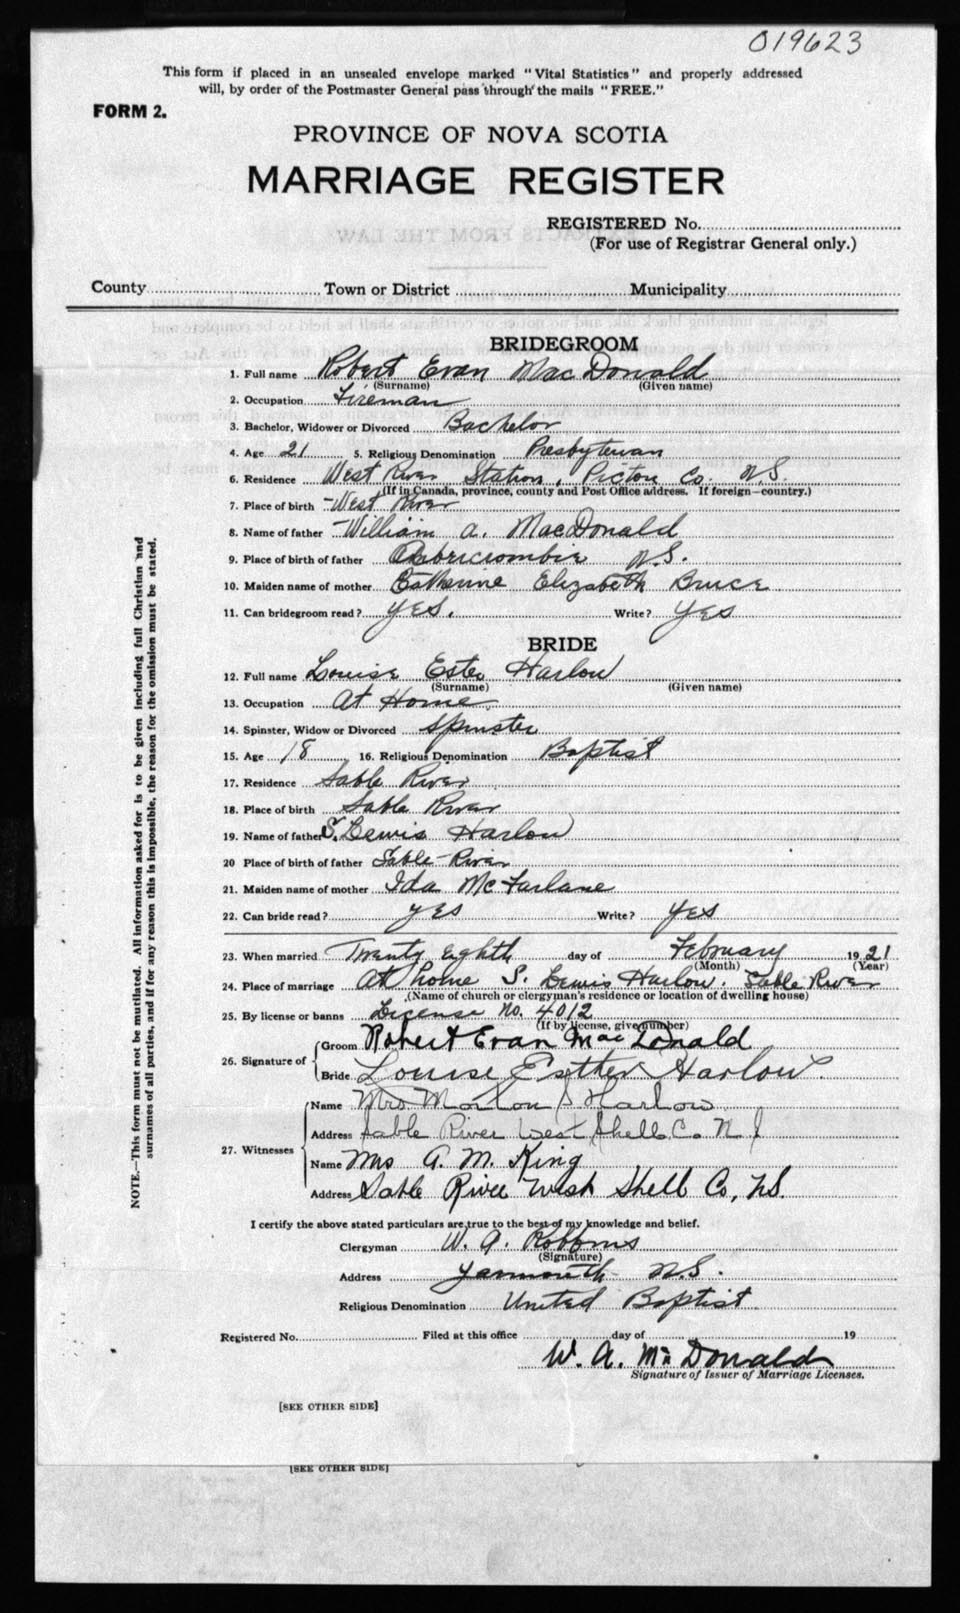 019623
This form if placed in an unsealed envelope marked "Vital Statistics" and properly addressed
will, by order of the Postmaster General pass through the mails "FREE."
FORM 2.
PROVINCE OF NOVA SCOTIA
MARRIAGE REGISTER
REGISTERED No.
(For use of Registrar General only.)
County Town or District Municipality
BRIDEGROOM
1. Full name Robert Evan MacDonald
(Surname) (Given name)
2. Occupation Fireman
3. Bachelor, Widower or Divorced Bachelor
4. Age 21 5. Religious Denomination Presbyterian
6. Residence West River Station, Pictou Co. N.S.
(If in Canada, province, county and Post Office address. If foreign—country.)
7. Place of birth West River
8. Name of father William A. MacDonald
9. Place of birth of father Abercrombie N.S.
10. Maiden name of mother Catherine Elizabeth Bruce
11. Can bridegroom read? Yes. Write? Yes
BRIDE
12. Full name Louise Ester Harlow
(Surname) (Given name)
13. Occupation At Home
14. Spinster, Widow or Divorced Spinster
15. Age 18 16. Religious Denomination Baptist
17. Residence Sable River
18. Place of birth Sable River
19. Name of father S. Lewis Harlow
20 Place of birth of father Sable River
21. Maiden name of mother Ida McFarlane
22. Can bride read? yes Write? yes
23. When married Twenty Eighth day of February 1921
(Month) (Year)
24. Place of marriage At home S. Lewis Harlow. Sable River
(Name of church or clergyman's residence or location of dwelling house)
25. By license or banns License No. 4012
(If by license, give number)
26. Signature of Groom Robert Evan MacDonald
Bride Louise Esther Harlow.
27. Witnesses Name Mrs Morton S Harlow
Address Sable River West Shelb Co. N S
Name Mrs A. M. King
Address Sable River West Shelb Co, N.S.
I certify the above stated particulars are true to the best of my knowledge and belief.
Clergyman W. A. Robbins
(Signature)
Address Yarmouth N.S.
Religious Denomination United Baptist
Registered No. Filed at this office day of 19
W. A. MacDonald
Signature of Issuer of Marriage Licenses.
[SEE OTHER SIDE]
[SEE OTHER SIDE]
NOTE.—This form must not be mutilated. All information asked for is to be given including full Christian and
surnames of all parties, and if for any reason this is impossible, the reason for the omission must be stated.